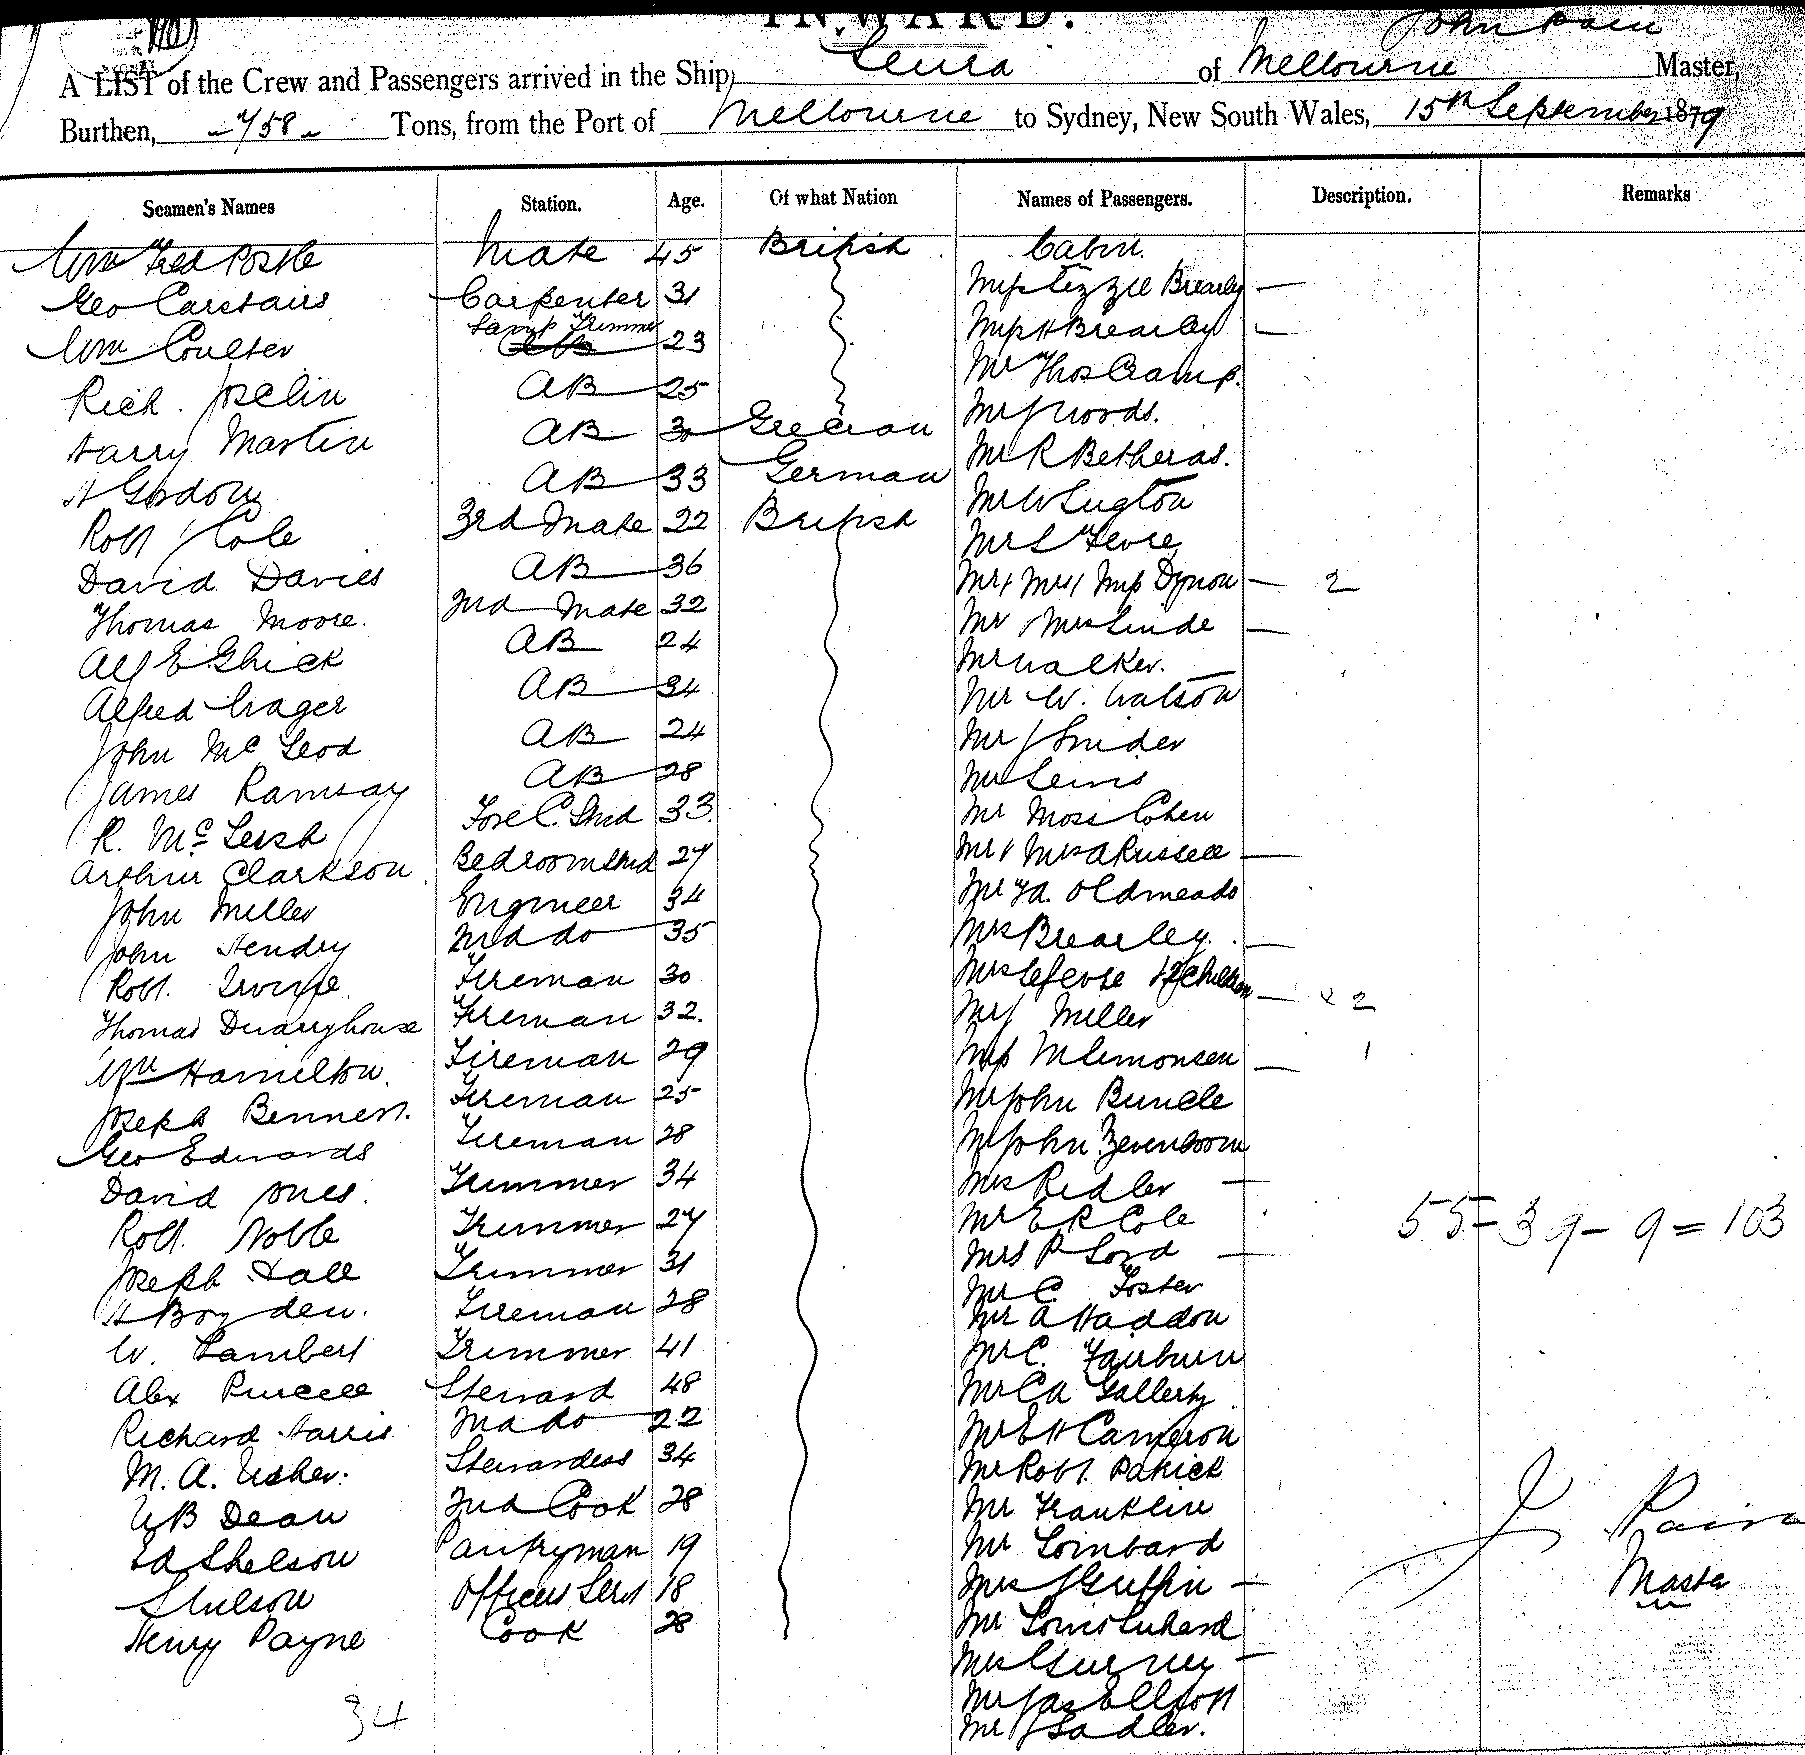 INWARD.
A LIST of the Crew and Passengers arrived in the Ship, Leura of Melbourne John Pain Master,
Burthen, 758 Tons, from the Port of Melbourne to Sydney, New South Wales, 15th September 1879
Seamen's Names Station. Age. Of what Nation Names of Passengers. Description. Remarks
Wm Fred Postle Mate 45 British Cabin.
Geo Carstairs Carpenter 31 Miss Lizzie Brearley —
Wm Coulter Lamp Trimmer 23 Miss H Brearley —
Rich. Joselin AB 25 Mr Thos Cramp.
Harry Martin AB 30 Grecian Mr J Woods.
A Gordon AB 33 German Mr R Betheras.
Robt J Cole 3rd Mate 22 British Mr W Lugton
David Davies AB 36 Mr L Fevre
Thomas Moore. 2nd Mate 32 Mr & Mrs & Miss Dynon — 2
Alf E Ghick AB 24 Mr & Mrs Linde —
Alfred Crager AB 34 Mr Walker.
John McLeod AB 24 Mr W. Watson
James Ramsay AB 28 Mr J Snider
R. McLeish Fore C. Stwd 33 Mr Lewis
Arthur Clarkson Bedroom Stwd 27 Mr Moss Cohen
John Miller Engineer 34 Mr & Mrs A Russell —
John Hendry 2nd do 35 Mr Fd. Oldmeads
Robt. Irvine Fireman 30 Mrs Brearley. —
Thomas Quarryhouse Fireman 32. Mrs Lefevre & 2 Children — & 2
Wm Hamilton. Fireman 29 Mr J Miller
Joseph Bennett. Fireman 25 Miss M Simonsen — 1
Geo Edwards Fireman 28 Mr John Buncle
David Jones. Trimmer 34 Mr John Zevenboom
Robt. Noble Trimmer 27 Mrs Ridler —
Joseph Hall Trimmer 31 Mr E R Cole
H Boyden. Fireman 28 Mrs P Lord —
55 - 39 - 9 = 103
W. Lambert Trimmer 41 Mr C. Foster
Alex Purcell Steward 48 Mr A Haddon
Richard Harris 2nd do 22 Mr C. Fairburn
M. A. Usher. Stewardess 34 Mr C A Gallerty
W B Dean 2nd Cook 28 Mr E H Cameron
Ed Shelson Pantryman 19 Mr Robt. Patrick
S Wilson Officers Servt 18 Mr Franklin
Henry Payne Cook 28 Mr Lombard
Mrs J Griffin —
Mr Louis
Mrs Gurney —
Mr Jas Elliott
Mr J Sadler.
J Pain
Master
34